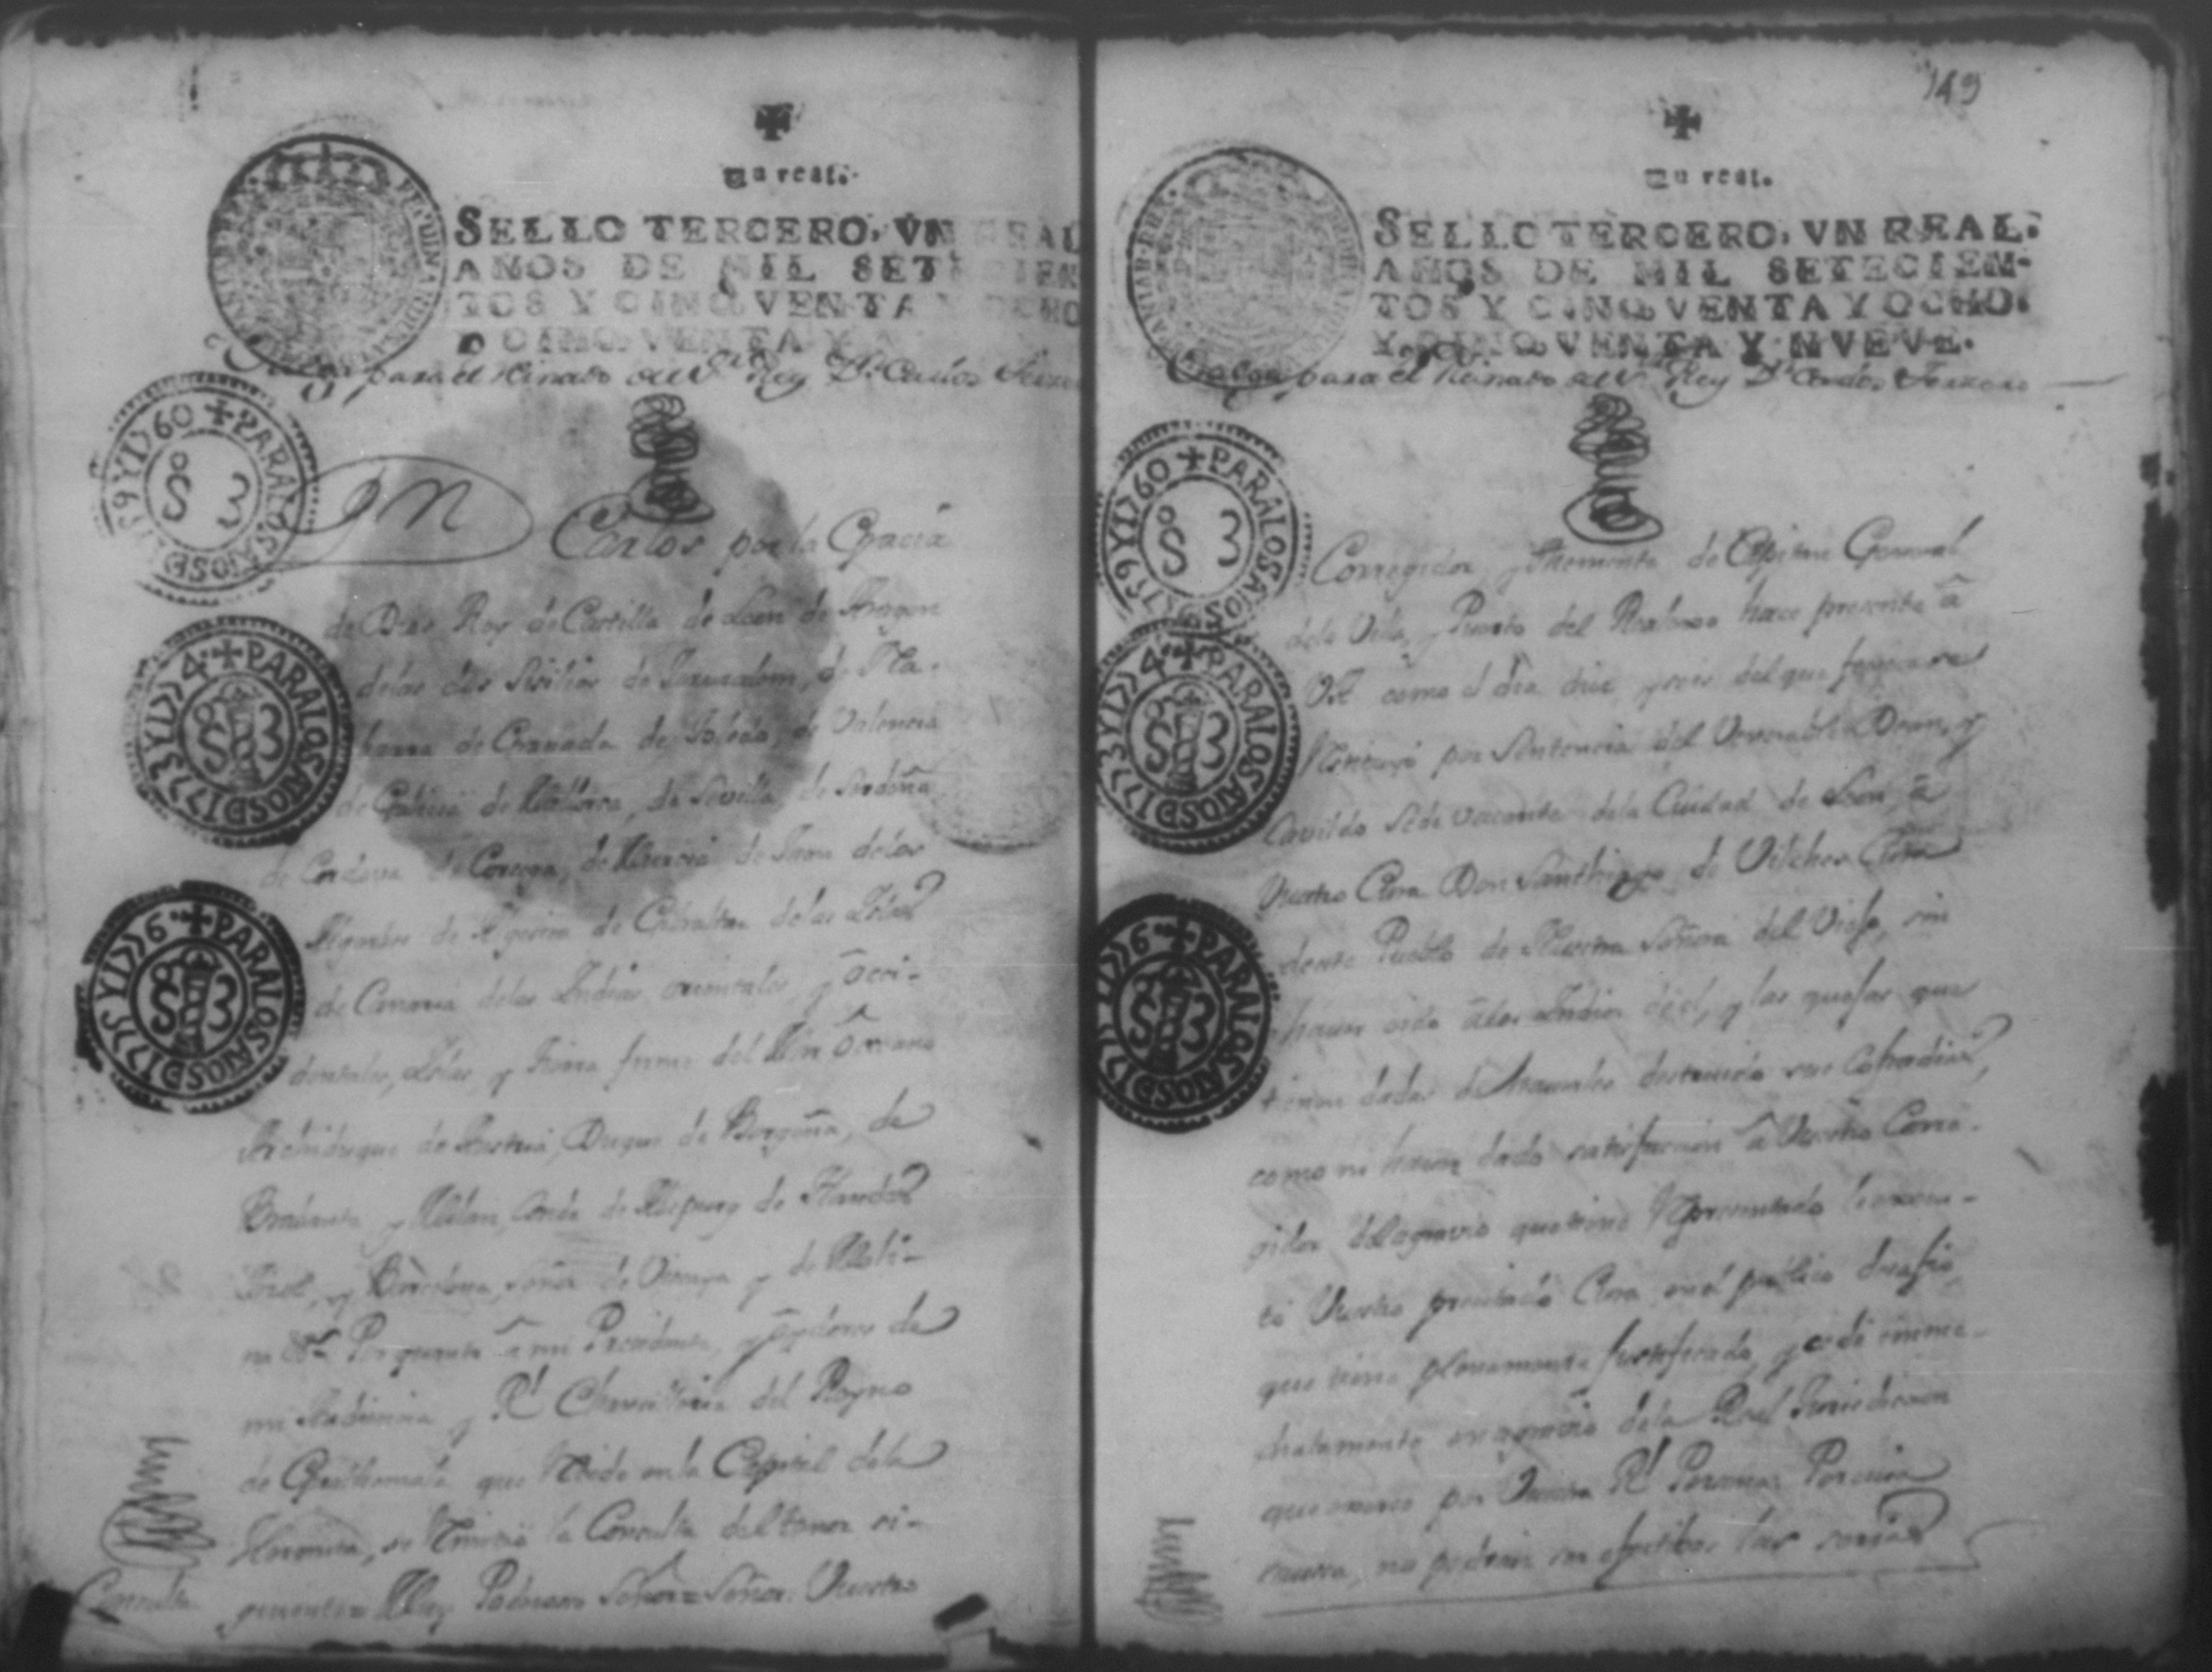 un real.
SELLO TERCERO, VN REAL
AÑOS DE MIL SETECIEN
TOS Y CINQVENTA Y OCHO
Y CINQVENTA Y
Valga para el Reinado del Sr. Rey Dn. Carlos Tercero
PARA LOS AÑOS D 1759 Y 1760
S 3
PARA LOS AÑOS D 1773 Y 1774
S 3
PARA LOS AÑOS D 1775 Y 1776
S 3
Dn Carlos por la Gracia
de Dios Rey de Castilla de Leon de Aragon
delas dos Sisilias de Jerusalem, de Na-
barra de Granada de Toledo, de Valencia
de Galicia de Mallorca, de Sevilla de Serdeña
de Cordova de Corcega, de Murcia de Jaen delos
Algarbes de Algecira de Gibraltar delas Islas
de Canaria delas Indias orientales, y occi-
dentales, Islas, y tierra firme del Mar occeano
Archiduque de Austria, Duque de Borgoña, de
Brabante y Milan, Conde de Abspurg de Flandes
Tirol, y Barcelona, Señor de Viscaya y de Moli-
na &a. Por quanto a mi Presidente, y oydores de
mi Audiencia y Rl. Chancilleria del Reyno
de Goathemala que Recide en la Capital dela
se la Consulta del tenor si-
Consulta guiente= Muy Poderoso Señor= Señor: Vuestro
149
un real.
SELLO TERCERO, VN REAL.
AÑOS DE MIL SETECIEN-
TOS Y CINQVENTA Y OCHO.
Y CINQVENTA Y NVEVE.
Valga para el Reinado del Sr. Rey Dn. Carlos Tercero
PARA LOS AÑOS D 1759 Y 1760
S 3
PARA LOS AÑOS D 1773 Y 1774
S 3
PARA LOS AÑOS D 1775 Y 1776
S 3
Corregidor, y Theniente de Capitan General
dela Villa, y Puerto del Realexo hace presente â
VA. como el dia diez y seis del que
por Sentencia del Venerable Dean, y
Cavildo Sede vacante dela Ciudad de Leon, â
Vuestro Cura Don Santhiago de Vilches Cura
deste Pueblo de Nuestra Señora del Viejo, sin
haver oido âlos Indios dêl, y las quejas que
tienen dadas de haverles destruido sus Cofradias,
como ni haver dado satisfacion â Vuestro Corre-
gidor delagravio que tiene Representado
Vuestro Cura en el publico desafio,
que tiene plenamente justificado, y cede inme-
diatamente en agravio dela Real Jurisdicion
que exerce por Vuestra Rl. Persona: Por cuia
causa, no podran ser efectibos las